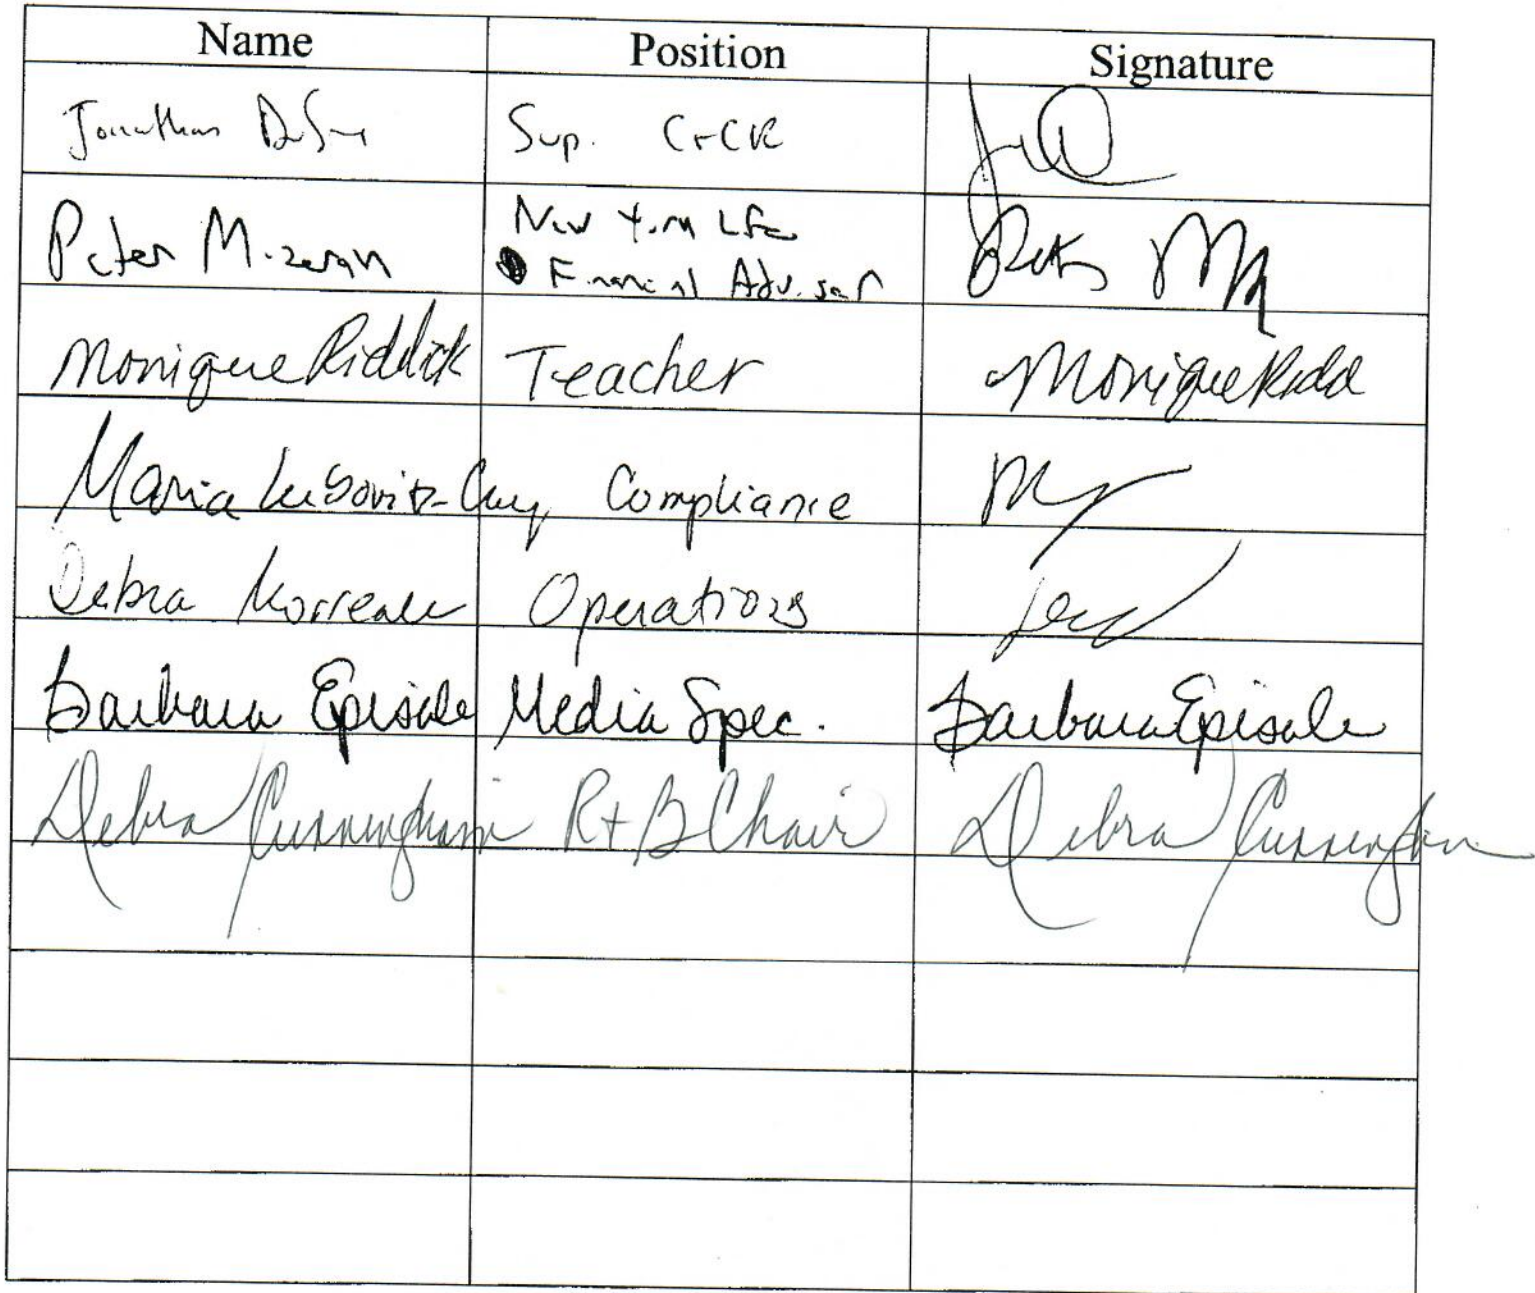 Name Position Signature
Jonathan Sup.
Peter New York Life
Financial Advisor Peter
Monique Riddick Teacher Monique
Maria Compliance
Debra Morreale Operations
Barbara Episale Media Spec. Barbara Episale
Debra Cunningham R+B Chair Debra Cunningham